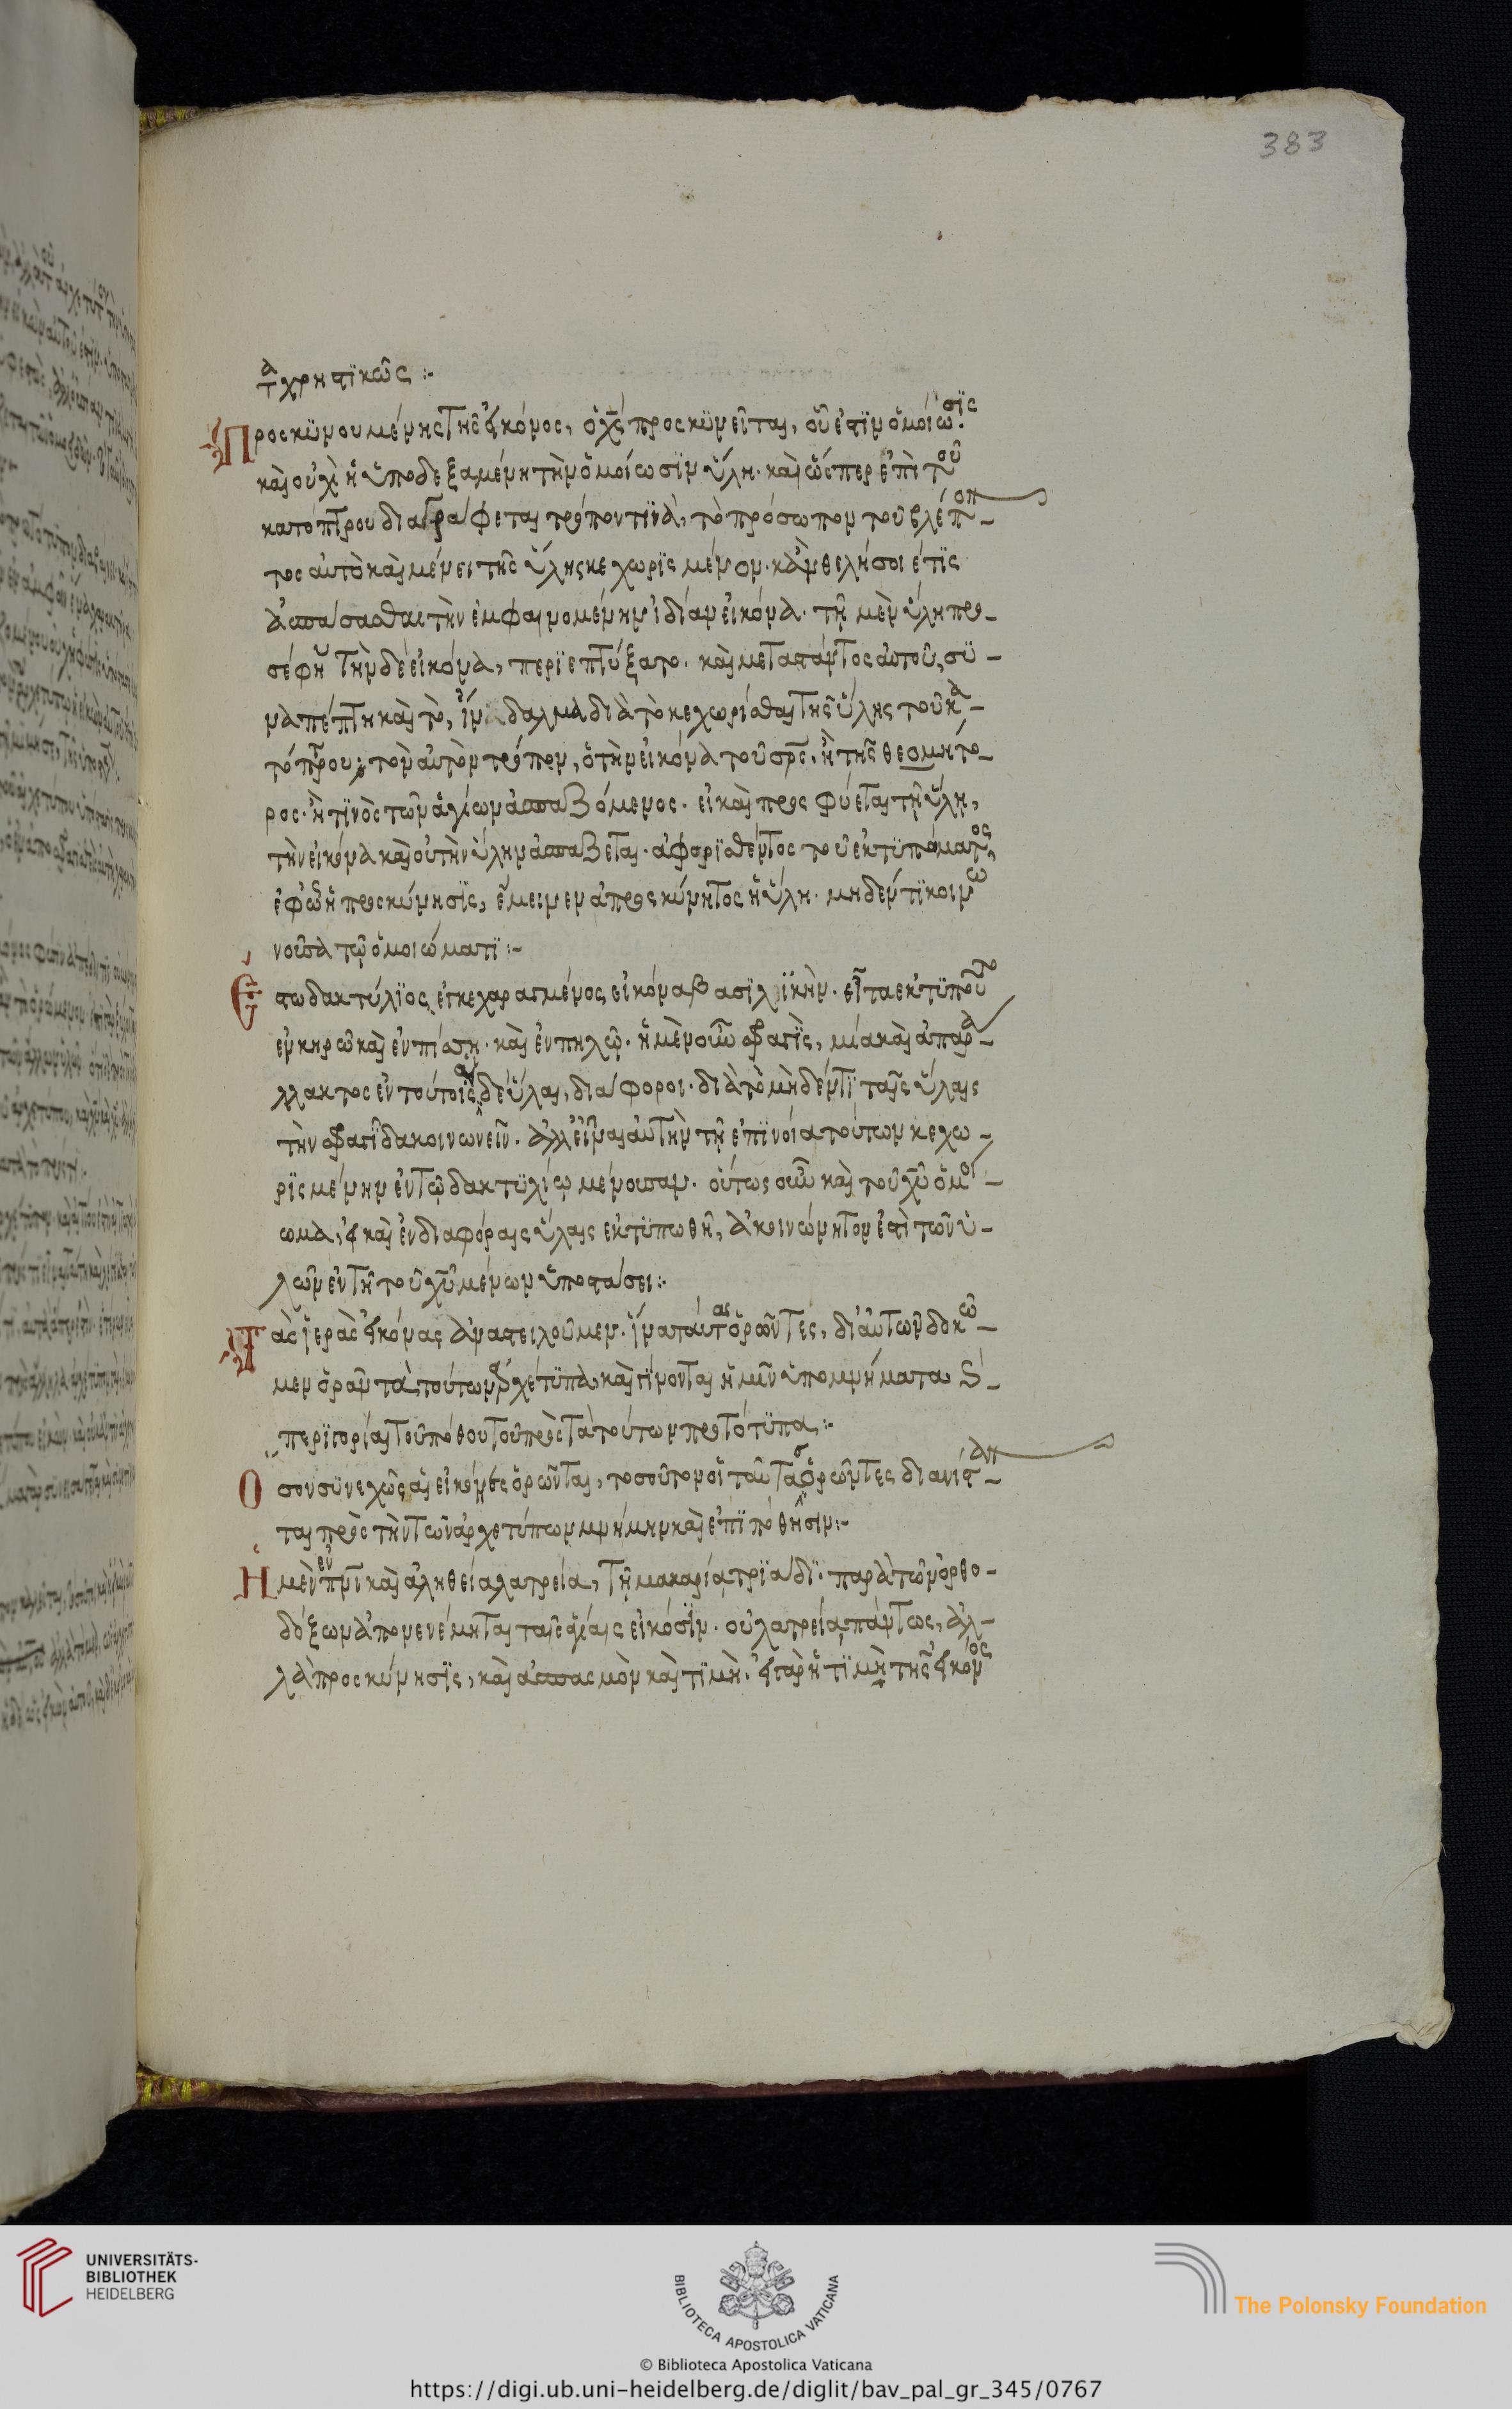 383
ταχρηστϊκῶς :-
Προσκϋνουμένης τῆς εἰκόνος, ὁ χς προσκϋνεῖται, οὗ ἐστϊν ὁμοίωσϊς.
καὶ οὐχὶ ἡ ὑποδεξαμένη τὴν ὁμοίωσϊν ὕλη. καὶ ὥσπερ ἐπὶ τοῦ
κατόπτρου διαγράφεται τρόπον τϊνὰ, τὸ πρόσωπον τοῦ βλέποντ-
τος αὐτὸ καὶ μένει τῆς ὕλης κεχωρϊσμένον. κἂν θελήσοιέ τϊς
ἀσπάσασθαι τὴν ἐμφαινομένην ἰδίαν εἰκόνα. τῇ μὲν ὕλη προ-
σέφη τὴν δὲ εἰκόνα, περϊεπτύξατο. καὶ μεταστάντος αὐτοῦ, σϋ-
ναπέπτη καὶ τὸ, ἴνδαλμα διὰ τὸ κεχωρίσθαι τῆς ὕλης τοῦ κα-
τόπτρου; τὸν αὐτὸν τρόπον, ὁ τὴν εἰκόνα τοῦ σρς, ἢ τῆς θεομήτο-
ρος. ἢ τϊνὸς τῶν ἁγίων ἀσπαζόμενος. εἰ καὶ προσφύεται τῇ ὕλη,
τὴν εἰκόνα καὶ οὐ τὴν ὕλην ἀσπάζεται. ἀφορϊσθέντος τοῦ ἐκτϋπώματος,
ἐφ ᾧ ἡ προσκύνησϊς, ἔμεινεν ἀπροσκύνητος ἡ ὕλη. μηδέν τϊ κοινω
νοῦσα τῷ ὁμοιώματϊ :-
Ἔστω δακτύλϊος ἐγκεχαραγμένος εἰκόνα βασϊλϊκὴν. εἶτα ἐκτϋπούτω
ἐν κηρῶ καὶ ἐν πίσση. καὶ ἐν πηλῷ. ἡ μὲν οὖν σφραγϊς, μία καὶ ἀπαρα-
λλακτος ἐν τούτοις αἱ δὲ ὕλαι, διάφοροι. διὰ τὸ μὴδέν τϊ ταῖς ὕλαις
τὴν σφραγῖδα κοινωνεῖν. ἀλλ εἶναι αὐτὴν τῇ ἐπϊνοία τούτων κεχω-
ρϊσμένην ἐν τῷ δακτϋλίῳ μένουσαν. οὕτως οὖν καὶ τοῦ χυ ὁμοι-
ωμα, εἰ καὶ ἐν διαφόραις ὕλαις ἐκτϋπωθῆ, ἀκοινώνητον ἐστὶ τῶν ὑ-
λῶν ἐν τῇ τοῦ χυ μένων ὑποστάσει :-
Τὰς ἱερὰς εἰκόνας ἀναστειλοῦμεν. ἵνα ταύτας ὁρῶντες, δι αὐτῶν δοκῶ-
μεν ὁρᾶν τὰ τούτων ἀρχέτϋπα, καὶ γίνονται ἡμῖν ὑπομνήματα
περ ϊστορίαι τοῦ πόθου τοῦ πρὸς τὰ τούτων πρωτότϋπα :-
Ὅσον σϋνεχῶς αἱ εἰκόνες ὁρῶνται, τοσοῦτον οἱ ταύτας ὁρῶντες διανίσταν-
ται πρὸς τὴν τῶν ἀρχετύπων μνήμην καὶ ἐπϊπόθησϊν :-
Ἡ μὲν ἐν πνϊ καὶ ἀληθεία λατρεία, τῇ μακαρία τρϊάδϊ. παρὰ τῶν ὀρθο-
δόξων ἀπονενέμηται ταῖς ἁγίαις εἰκόσϊν. οὐ λατρεία πάντως, ἀλ-
λὰ προσκύνησϊς, καὶ ἀσπασμὸν καὶ τϊμὴ. εἰ γὰρ ἡ τϊμὴ τῆς εἰκόνος
UNIVERSITÄTS-
BIBLIOTHEK
HEIDELBERG
BIBLIOTECA APOSTOLICA VATICANA
The Polonsky Foundation
© Biblioteca Apostolica Vaticana
https://digi.ub.uni-heidelberg.de/diglit/bav_pal_gr_345/0767